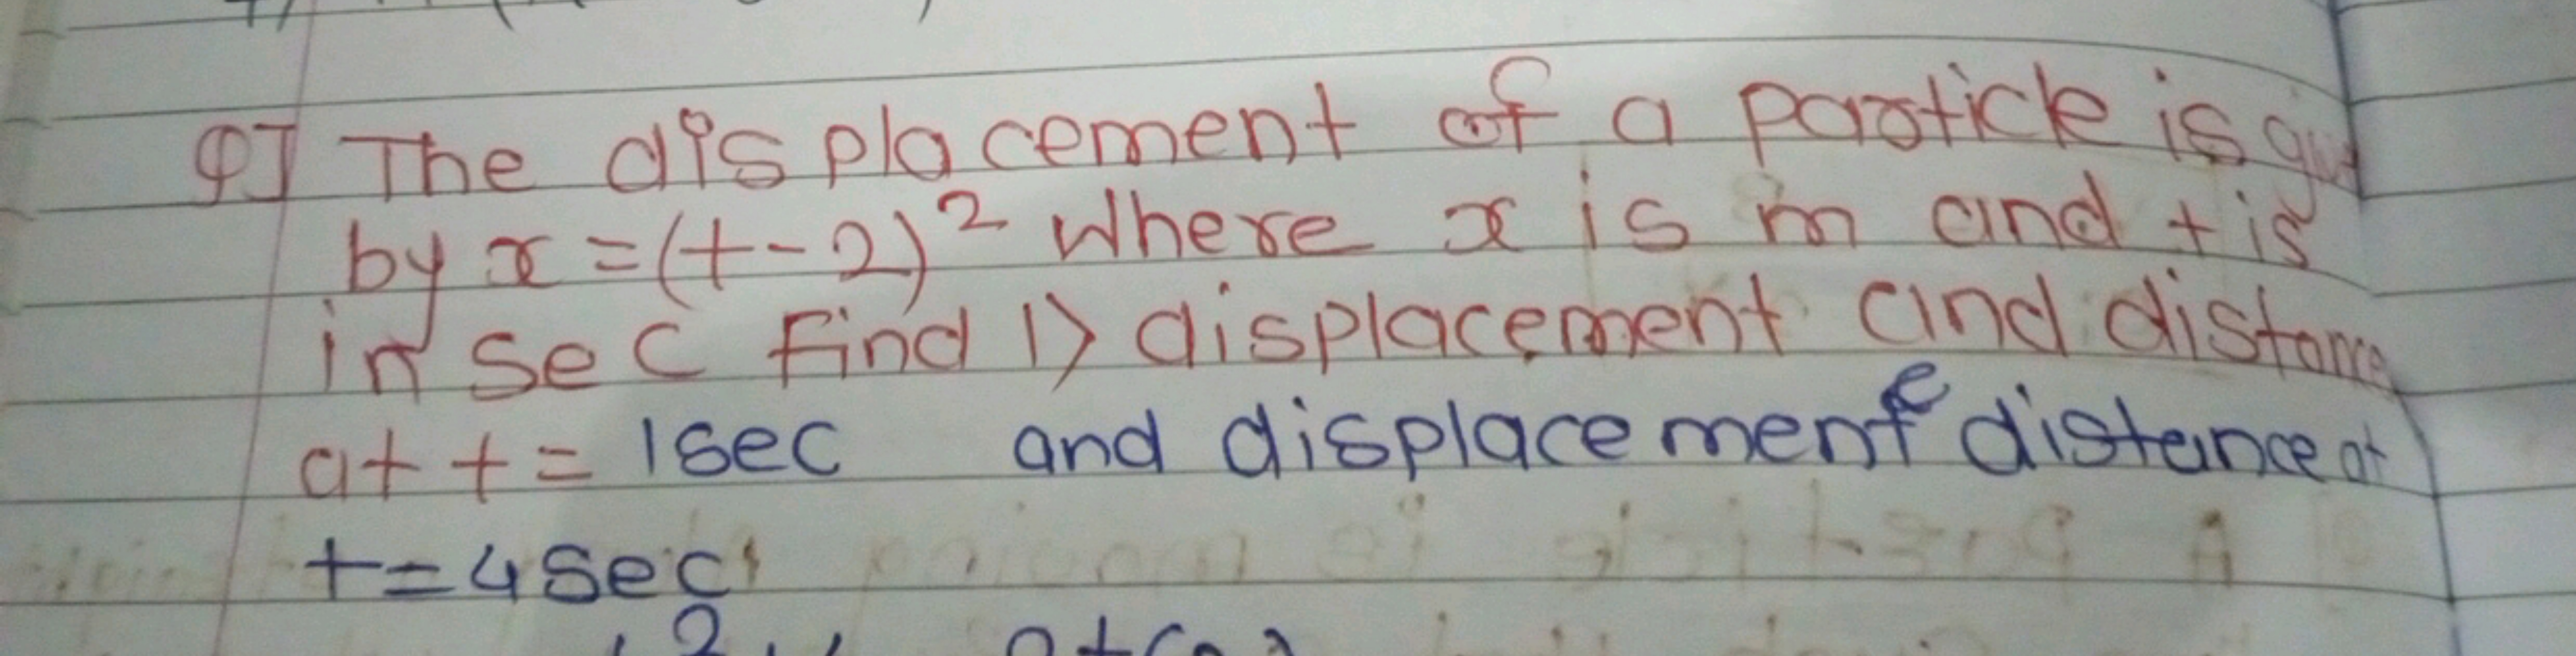 Q] The displacement of a particle is
by x = (t-2)² where x is m and t is
in sec find 1> displacement and distance
at t = 1sec and displacement e distance at
t = 4sec